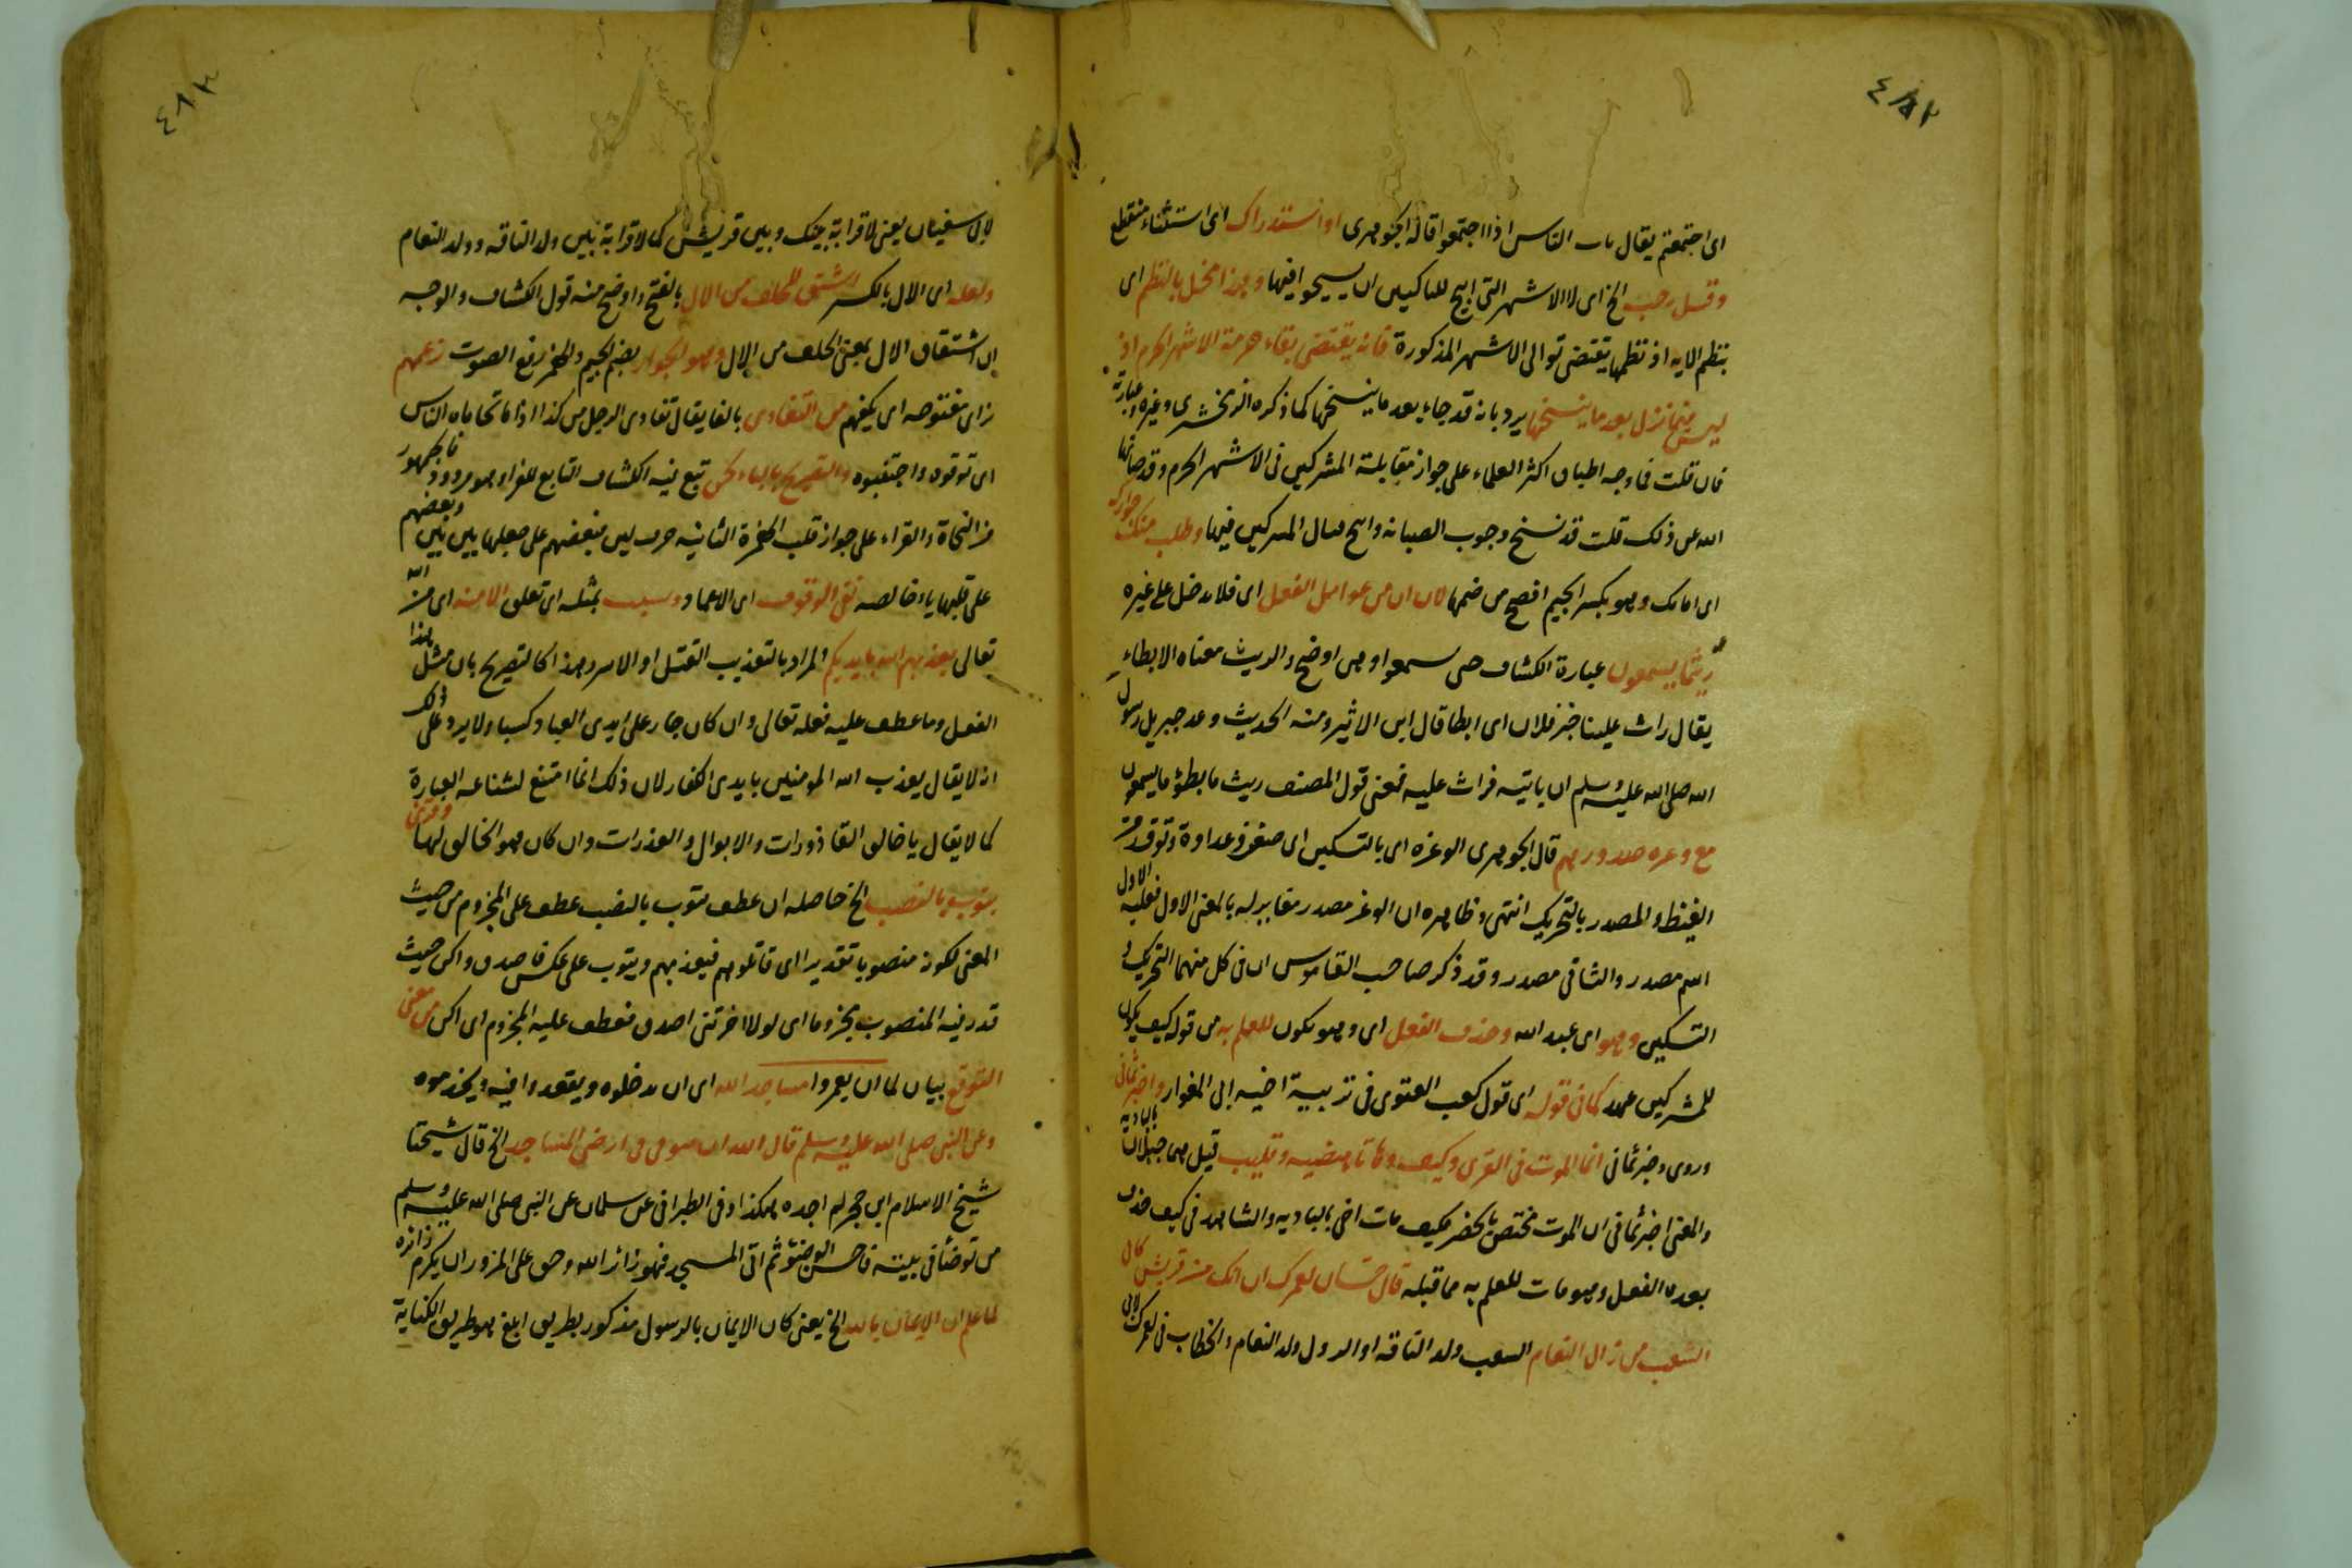 ٤٨٢
اى اجتمعتم يقال بات الناس اذا اجتمعوا قاله الجوهرى او استدراك اى استثناء منقطع
وقيل رجب الخ اى لا الاشهر التى ابيح للناكثين ان يسيحوا فيها وهذا مخل بالنظم اى
بنظم الايه اذ نظمها يقتضى توالى الاشهر المذكورة فانه يقتضى بقاء حرمة الاشهر الحرم اذ
ليس فيما نزل بعد ما ينسخها يرد بانه قد جاء بعد ما ينسخها كما ذكره الزمخشرى وغيره وعبارته
فان قلت فما وجه اطباق اكثر العلماء على جواز مقابلة المشركين فى الاشهر الحرم وقد صانها
الله عن ذلك قلت قد نسخ وجوب الصيانه وابيح قتال المشركين فيها وطلب منك جوارك
اى امانك وهو بكسر الجيم افصح من ضمها لان ان من عوامل الفعل اى فلا تدخل على غيره
ريثما يسمعون عبارة الكشاف حتى يسمعوا وهى اوضح والريث معناه الابطاء
يقال راث علينا خبر فلان اى ابطا قال ابن الاثير ومنه الحديث وعد جبريل رسول
الله صلى الله عليه وسلم ان ياتيه فراث عليه فمعنى قول المصنف ريث ما يبطؤ ما يسمعون
مع وغره صدورهم قال الجوهرى الوغره اى بالتسكين اى ضغن وعداوة وتوقد من
الغيظ والمصدر بالتحريك انتهى وظاهره ان الوغر مصدر مغاير له بالمعنى الاول فعليه الاول
اسم مصدر والثانى مصدر وقد ذكر صاحب القاموس ان فى كل منهما التحريك و
التسكين وهو اى عبد الله وحذف الفعل اى وهو يكون للعلم به من قوله كيف يكون
للمشركين عهد كما فى قوله اى قول كعب الغنوى فى مرثية اخيه ابى المغوار واخبرتمانى
وروى وخبرتمانى انما الموت فى القرى وكيف وهاتا هضبه وقليب قيل هى جبلان بالباديه
والمعنى اخبرتمانى ان الموت مختص بالحضر فكيف مات اخى بالباديه والشاهد فى كيف حذف
بعده الفعل وهو مات للعلم به مما قبله قال حسان لعمرك ان الك من قريش كال
السقب من رال النعام السقب ولد الناقه او الدول ولد النعام والخطاب فى لعمرك لابى
٤٨٣
لابى سفيان يعنى لا قرابة بينك وبين قريش كما لا قرابة بين ولد الناقه وولد النعام
ولعله اى الال بالكسر اشتق للحلف من الال بالفتح واوضح منه قول الكشاف والوجه
ان اشتقاق الال بمعنى الحلف من الال وهو الجوار بضم الجيم والهمز رفع الصوت زعمهم
زاى مفتوحه اى يكفهم من التفادى بالفا يقال تفادى الرجل من كذا اذا تحاماه الناس
اى توقوه واجتنبوه والتصريح بالياء لحن تبع فيه الكشاف التابع للفراء وهو مردود فالجمهور
من النحاة والقراء على جواز قلب الهمزة الثانيه حرف لين فبعضهم على جعلها بين بين وبعضهم
على قلبها ياء خالصه نفى الوقوف اى الاعتماد وسبب بمثله اى تعلق الامنه اى من الله
تعالى يعذبهم الله بايديكم المراد بالتعذيب القتل او الاسر وهذا كالتصريح بان مثل هذا
الفعل وما عطف عليه فعله تعالى وان كان جار على ايدى العباد كسبا ولا يرد على ذلك
انه لا يقال يعذب الله المومنين بايدى الكفار لان ذلك انما امتنع لشناعه العبارة
كما لا يقال يا خالق القاذورات والابوال والعذرات وان كان هو الخالق لها وقرئ
يتوب بالنصب الخ حاصله ان عطف يتوب بالنصب عطف على المجزوم من حيث
المعنى لكونه منصوبا تقديرا اى قاتلوهم فيعذبهم ويتوب على عكس فاصدق واكن حيث
قدر فيه المنصوب مجزوما اى لولا اخرتنى اصدق فعطف عليه المجزوم اى اكن من معنى
التوقع بيان لما ان يعمروا مساجد الله اى ان يدخلوه ويقعدوا فيه ويخدموه
وعن النبى صلى الله عليه وسلم قال الله ان بيوتى فى ارضى المساجد الخ قال شيخنا
شيخ الاسلام ابن حجر لم اجده هكذا وفى الطبرانى عن سلمان عن النبى صلى الله عليه وسلم
من توضأ فى بيته فاحسن الوضوء ثم اتى المسجد فهو زائر الله وحق على المزور ان يكرم زائره
لما علم ان الايمان بالله الخ يعنى كان الايمان بالرسول مذكور بطريق ابلغ هو طريق الكناية